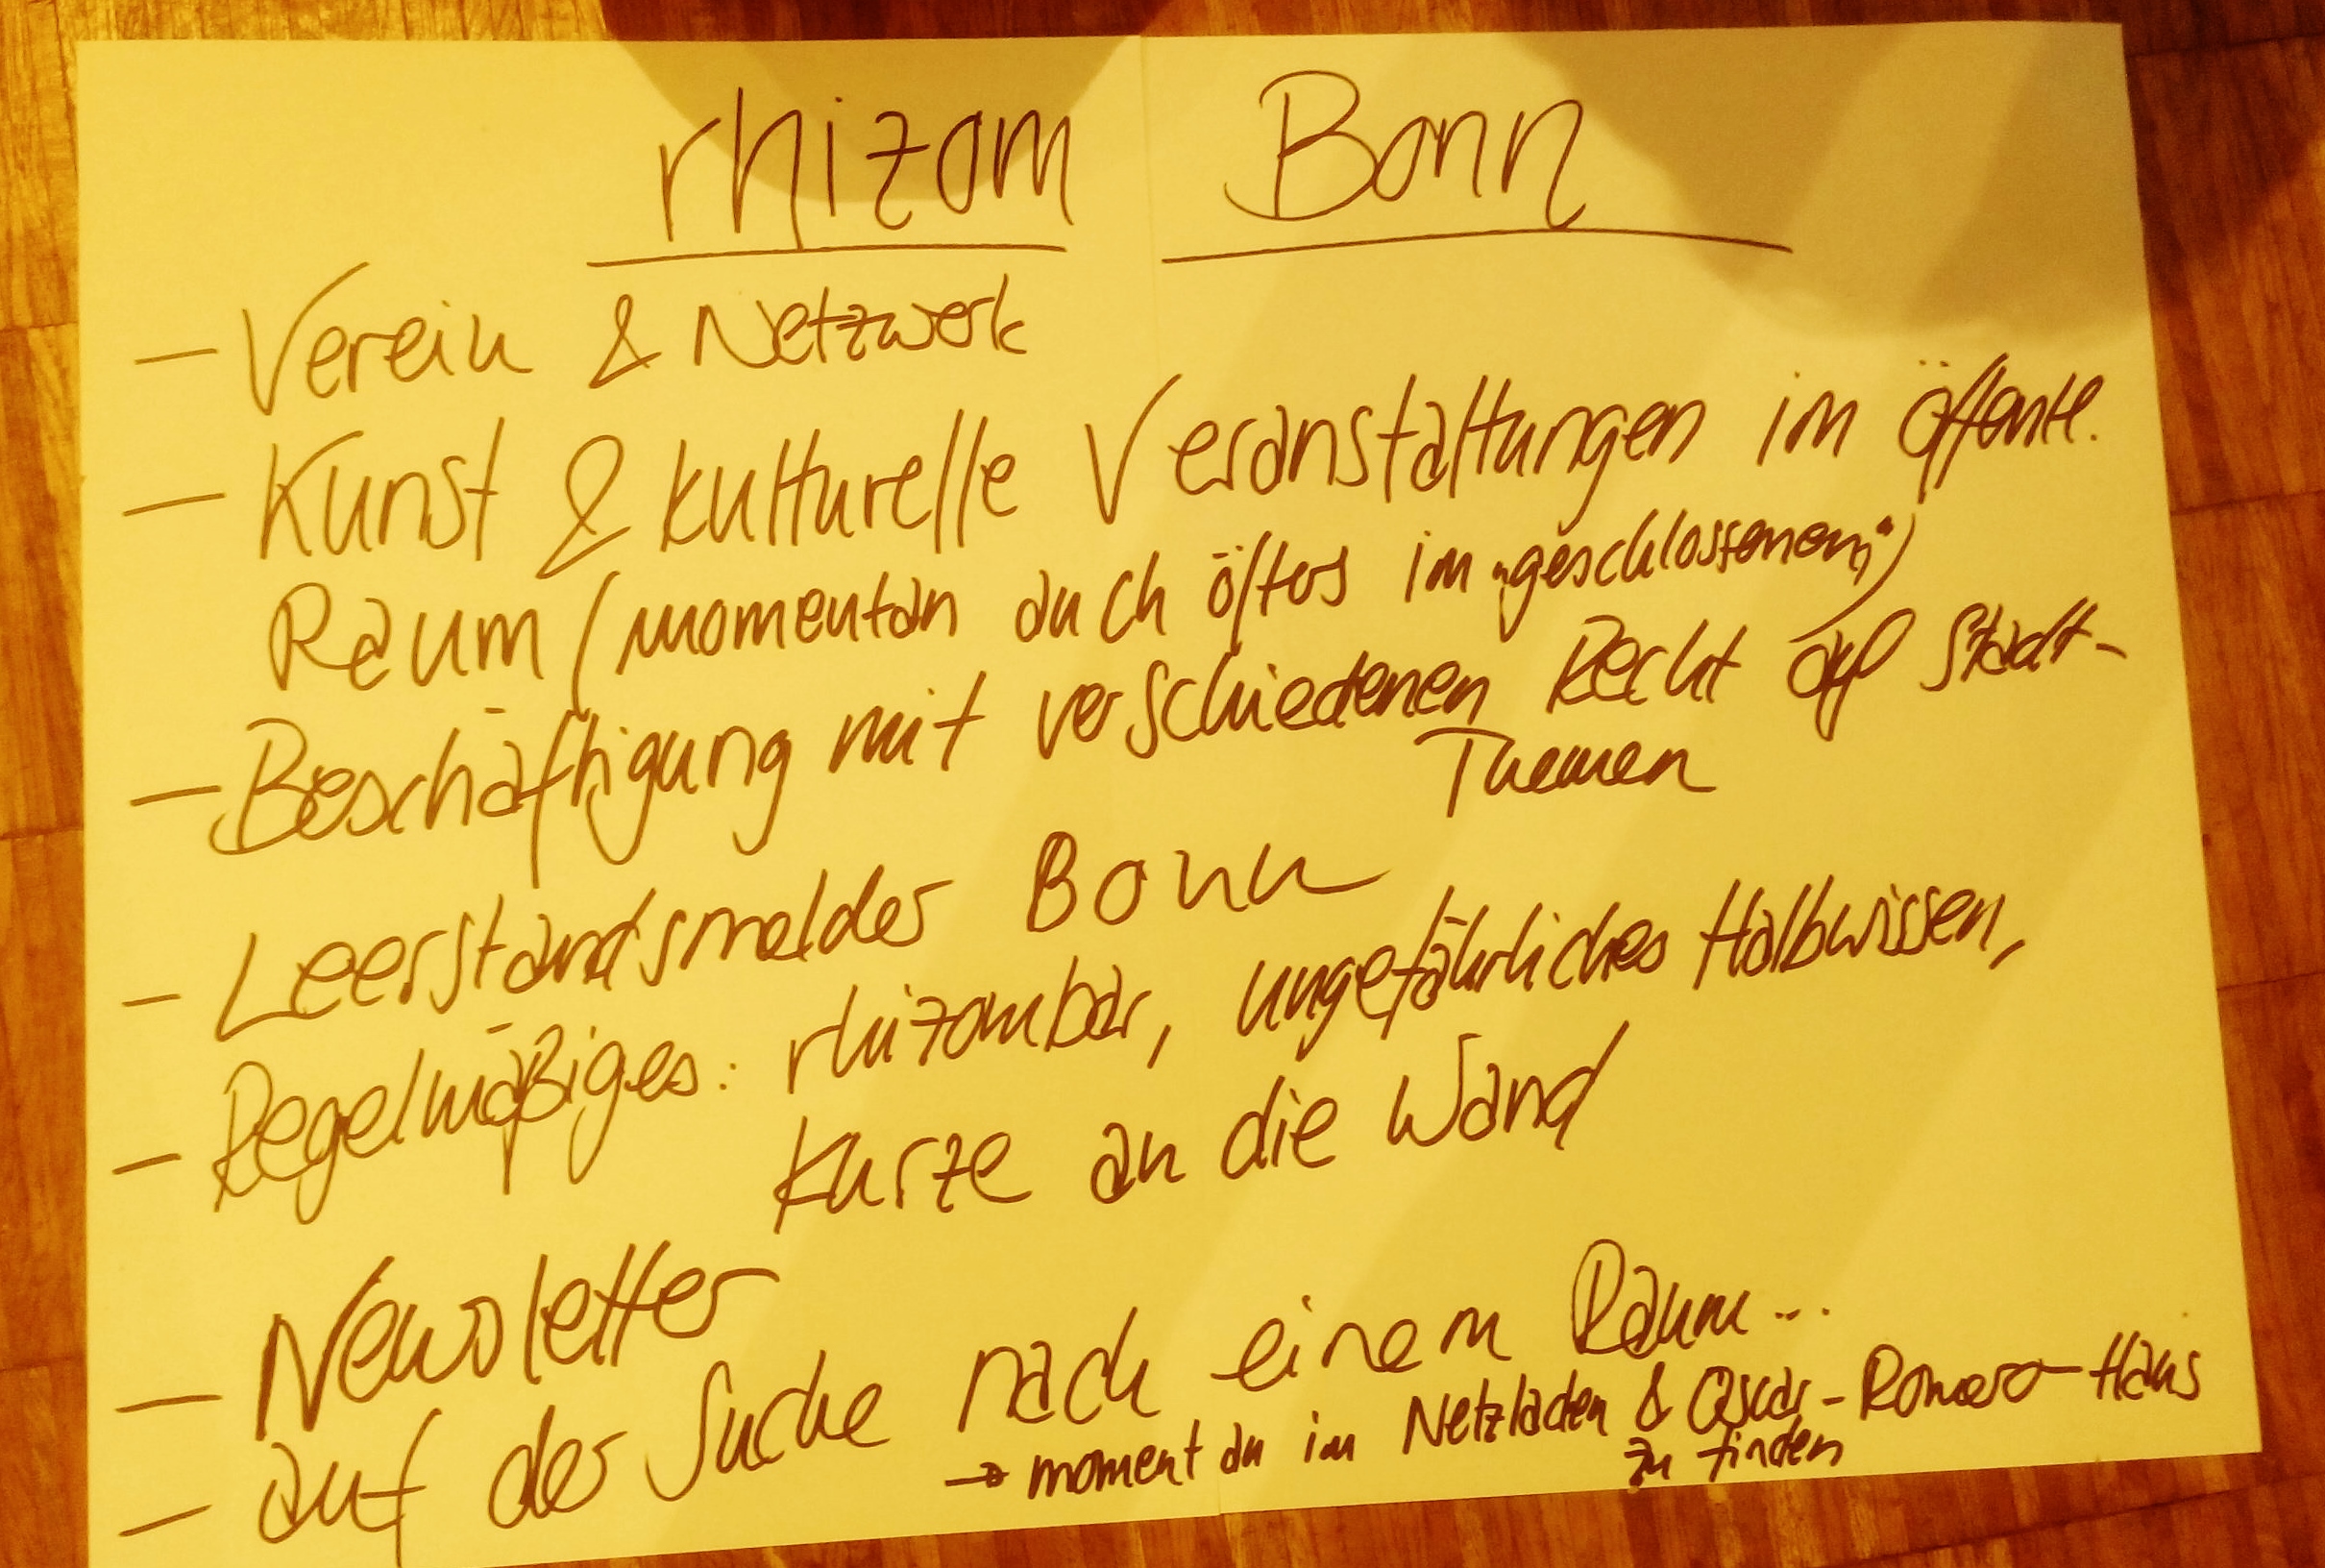 rhizom Bonn
– Verein & Netzwerk
– Kunst & kulturelle Veranstaltungen im öffentl.
Raum (momentan auch öfters im "geschlossenem")
– Beschäftigung mit verschiedenen Recht auf Stadt-
Themen
– Leerstandsmelder Bonn
– Regelmäßiges: rhizombar, ungefährliches Halbwissen,
Kurze an die Wand
– Newsletter
– auf der Suche nach einem Raum...
→ momentan im Netzladen & Oscar-Romero-Haus
zu finden